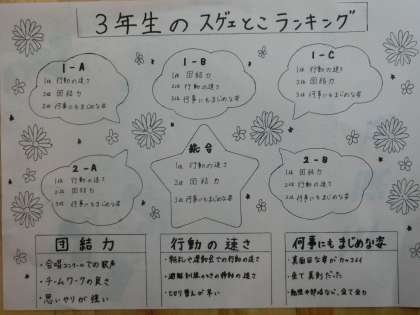 3年生のスゲェとこランキング
1-A
1位 行動の速さ
2位 団結力
3位 何事にもまじめな姿
1-B
1位 団結力
2位 行動の速さ
3位 何事にもまじめな姿
1-C
1位 団結力
2位 行動の速さ
3位 何事にもまじめな姿
2-A
1位 行動の速さ
2位 団結力
3位 何事にもまじめな姿
総合
1位 行動の速さ
2位 団結力
3位 何事にもまじめな姿
2-B
1位 団結力
2位 行動の速さ
3位 何事にもまじめな姿
団結力
・合唱コンクールでの歌声
・チームワークの良さ
・思いやりが強い
行動の速さ
・避難訓練のときの移動の速さ
・切り替えが早い
何事にもまじめな姿
・真面目な姿がカッコイイ
・全て真剣だった